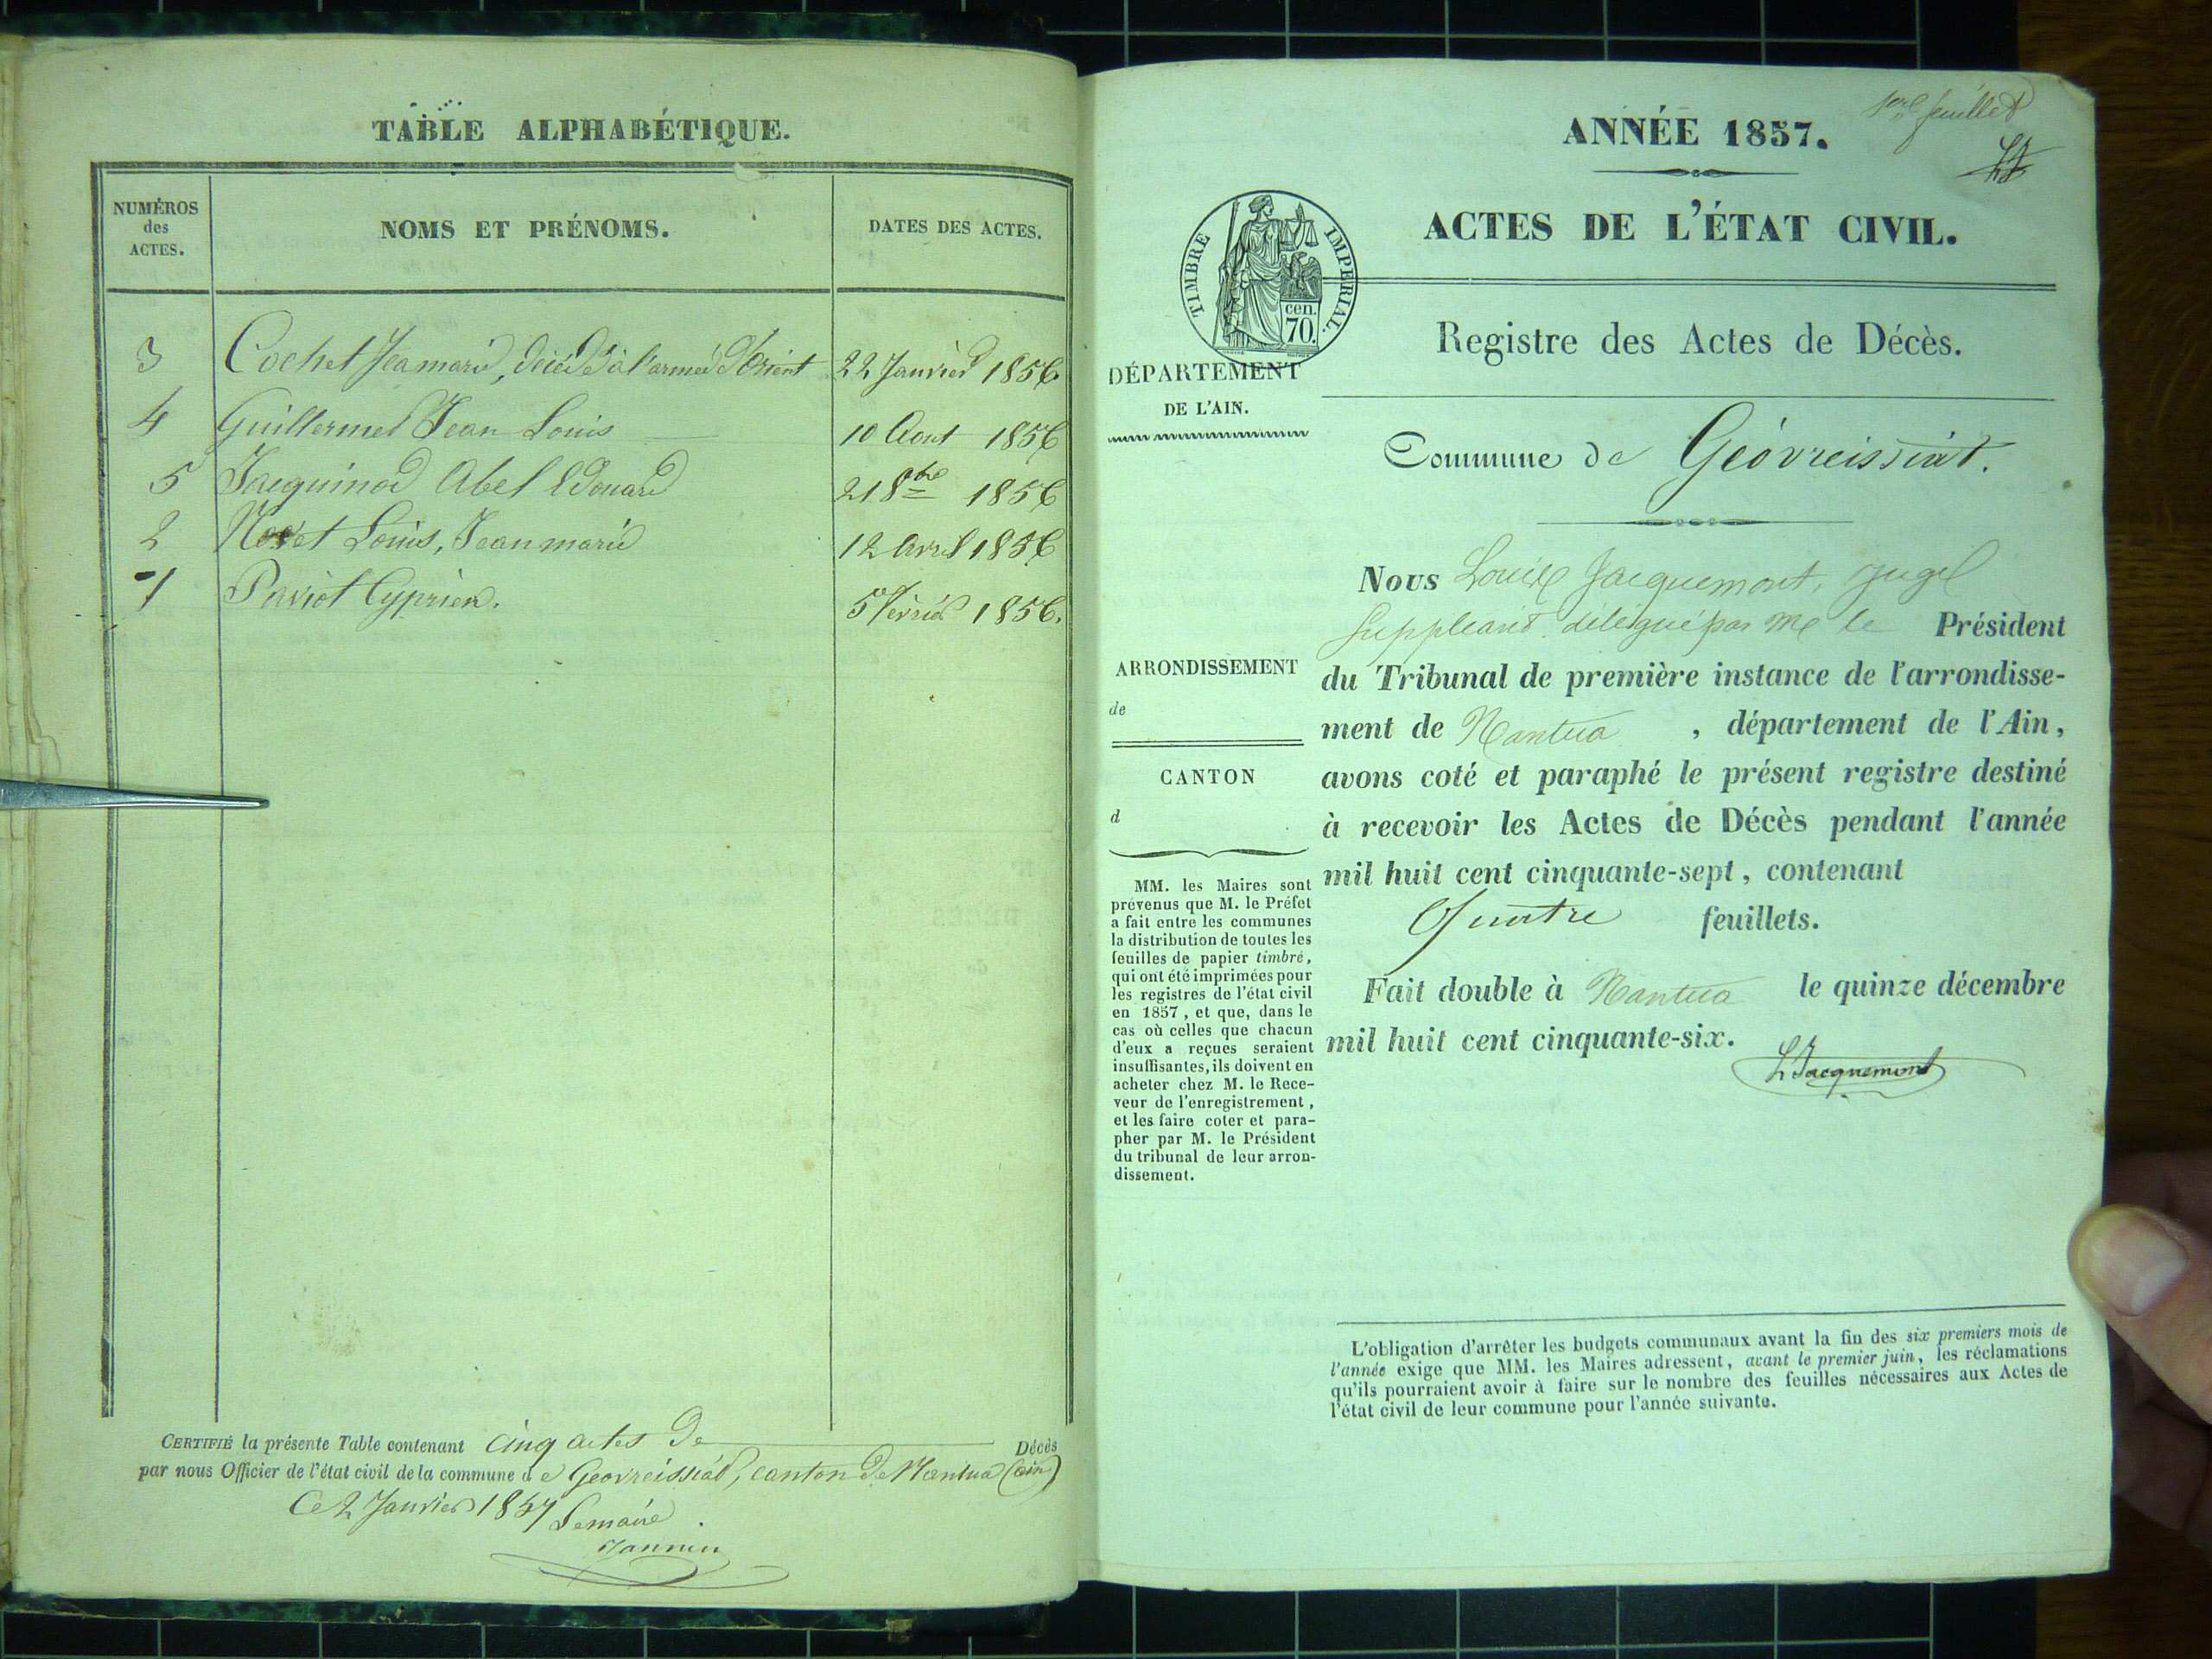 TABLE ALPHABÉTIQUE.
NUMÉROS des ACTES.
NOMS ET PRÉNOMS.
DATES DES ACTES.
3 Cochet Jeamarie, décédé à l'armée d'Orient 22 Janvier 1856
4 Guillermet Jean Louis 10 Aout 1856
5 Jacquinod Abel Edouard 21 8bre 1856
2 Louis, Jean marie 12 Avril 1856
1 Paviot Cyprien. 5 fevrier 1856.
CERTIFIÉ la présente Table contenant cinq actes de Décès
par nous Officier de l'état civil de la commune de Geovreissiat, canton de Nantua (ain)
Ce 2 Janvier 1857 Le maire
Jannin
1er feuillet
ANNÉE 1857.
ACTES DE L'ÉTAT CIVIL.
TIMBRE IMPERIAL.
cen. 70.
DÉPARTEMENT
DE L'AIN.
Registre des Actes de Décès.
Commune de Géovreissiat.
Nous Louis Jacquemont, juge
suppleant délégué par Mr le Président
du Tribunal de première instance de l'arrondisse-
ment de Nantua , département de l'Ain,
avons coté et paraphé le présent registre destiné
à recevoir les Actes de Décès pendant l'année
mil huit cent cinquante-sept, contenant
Quatre feuillets.
Fait double à Nantua le quinze décembre
mil huit cent cinquante-six.
LJacquemont
ARRONDISSEMENT
de
CANTON
d
MM. les Maires sont
prévenus que M. le Préfet
a fait entre les communes
la distribution de toutes les
feuilles de papier timbré,
qui ont été imprimées pour
les registres de l'état civil
en 1857, et que, dans le
cas où celles que chacun
d'eux a reçues seraient
insuffisantes, ils doivent en
acheter chez M. le Rece-
veur de l'enregistrement,
et les faire coter et para-
pher par M. le Président
du tribunal de leur arron-
dissement.
L'obligation d'arrêter les budgets communaux avant la fin des six premiers mois de
l'année exige que MM. les Maires adressent, avant le premier juin, les réclamations
qu'ils pourraient avoir à faire sur le nombre des feuilles nécessaires aux Actes de
l'état civil de leur commune pour l'année suivante.